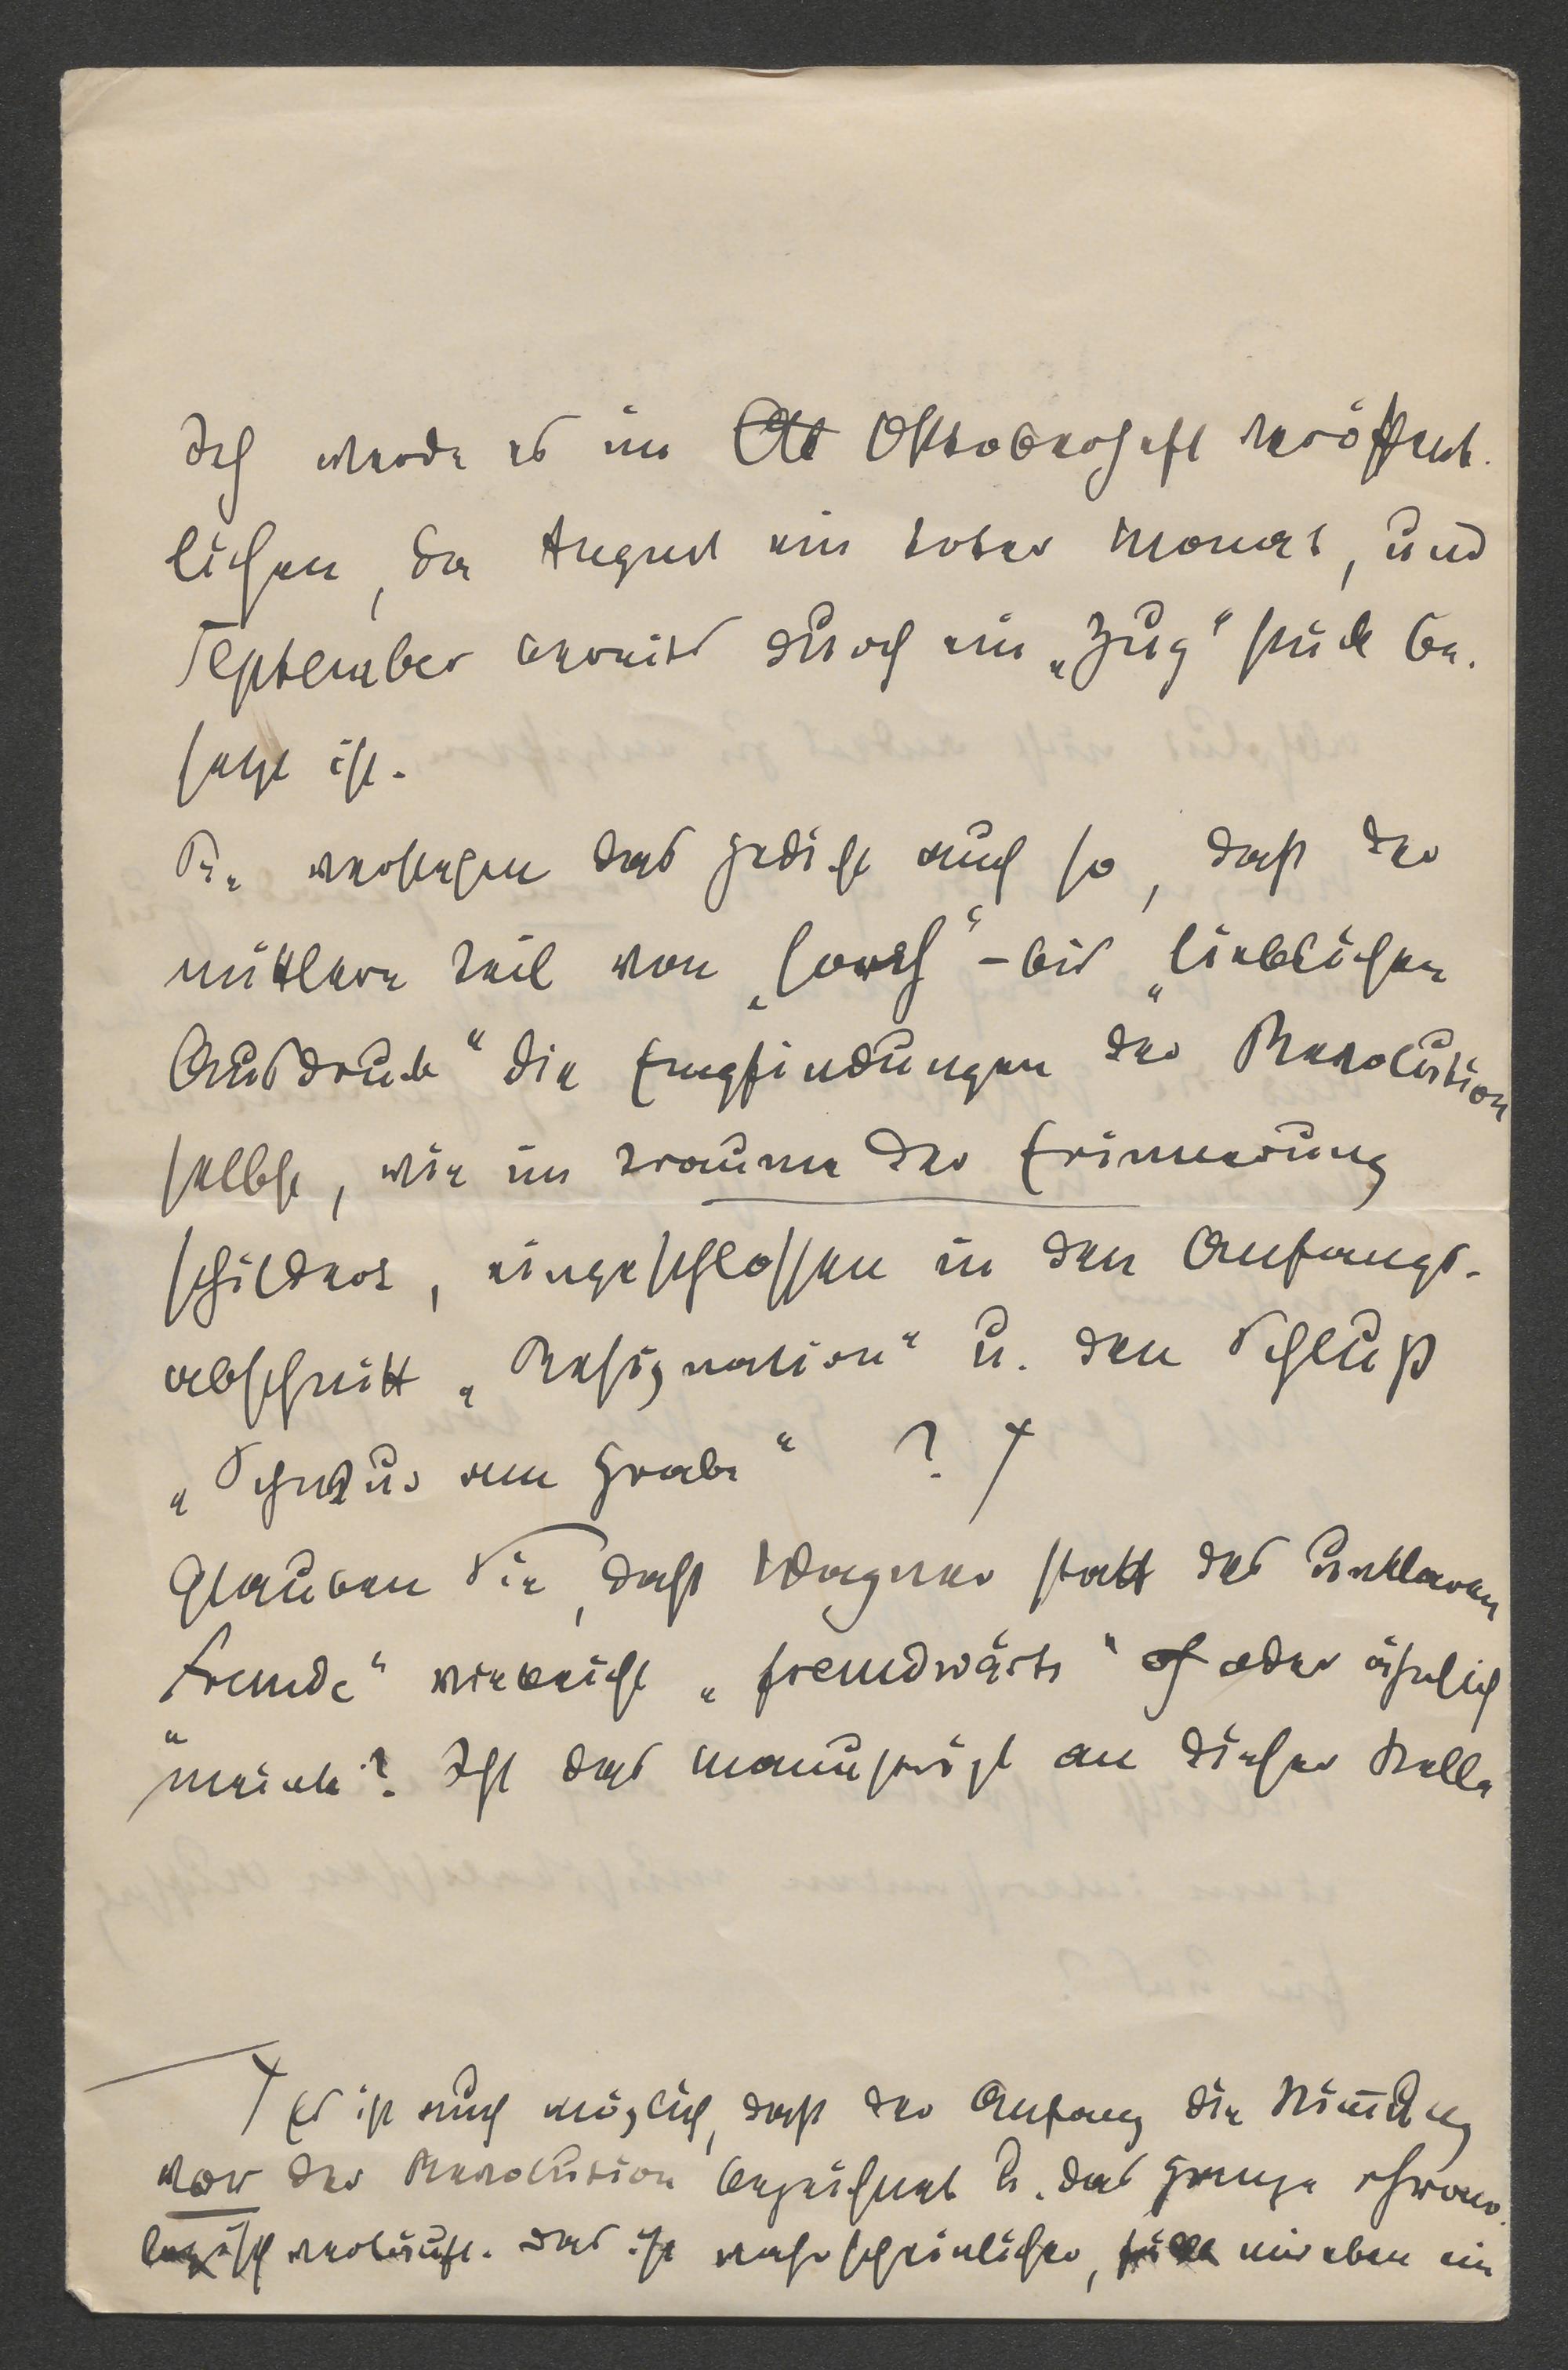 Ich werde es im Okt Oktoberheft veröffent-
lichen, da August ein toter Monat, und
September bereits durch ein „Zug“stück be-
setzt ist.
Sie verstehen das Gedicht auch so, daß der
mittlere Teil von „horch“ – bis „lieblichen
Ausdruck“ die Empfindungen der Revolution
selbst, wie im Traume der Erinnerung
schildert, eingeschlossen in den Anfangs-
abschnitt „Resignation“ u. den Schluß
„Schwur am Grabe“ ? †
Glauben Sie, daß Wagner statt des unklaren
„Fremde“ vielleicht „fremdwärts“ oder ähnlich
meinte? Ist das Manuskript an dieser Stelle
† Es ist auch möglich, daß der Anfang die Stimmung
vor der Revolution bezeichnet u. das Ganze chrono-
logisch verläuft. Das ist wahrscheinlicher, fällt mir eben ein